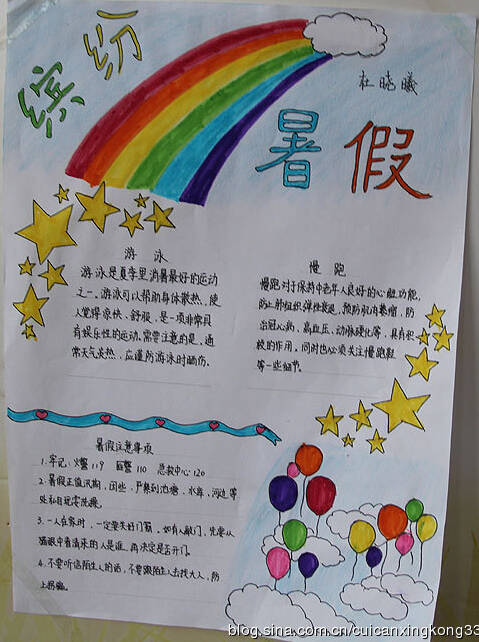 缤纷
杜晓曦
暑假
游泳
游泳是夏季里消暑最好的运动
之一。游泳可以帮助身体散热,使
人觉得凉快、舒服,是一项非常具
有娱乐性的运动。需要注意的是,通
常天气炎热,应谨防游泳时晒伤。
慢跑
慢跑对于保持中老年人良好的心脏功能,
防止肺组织弹性衰退,预防肌肉萎缩,防
治冠心病、高血压、动脉硬化等,具有积
极的作用。同时也必须关注慢跑鞋
等一些细节。
暑假注意事项
1.牢记:火警119 匪警110 急救中心120
2.暑假正值汛期,因些,严禁到池塘,水库,河边等
处私自玩耍洗澡。
3.一人在家时,一定要关好门窗,如有人敲门,先要从
猫眼中看清来的人是谁,再决定是否开门。
4.不要听信陌生人的话,不要跟陌生人去找大人,防
上拐骗。
blog.sina.com.cn/cuicanxingkong33